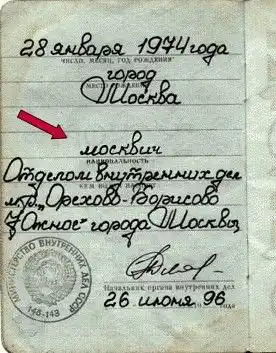 28 января 1974 года
ЧИСЛО, МЕСЯЦ, ГОД РОЖДЕНИЯ
город
МЕСТО РОЖДЕНИЯ
Москва
москвич
НАЦИОНАЛЬНОСТЬ
Отделом внутренних дел
КЕМ ВЫДАН
мкр. Орехово-Борисово
Южное города Москвы
МИНИСТЕРСТВО ВНУТРЕННИХ ДЕЛ СССР
148-143
Начальник органа внутренних дел
26 июня 96 года